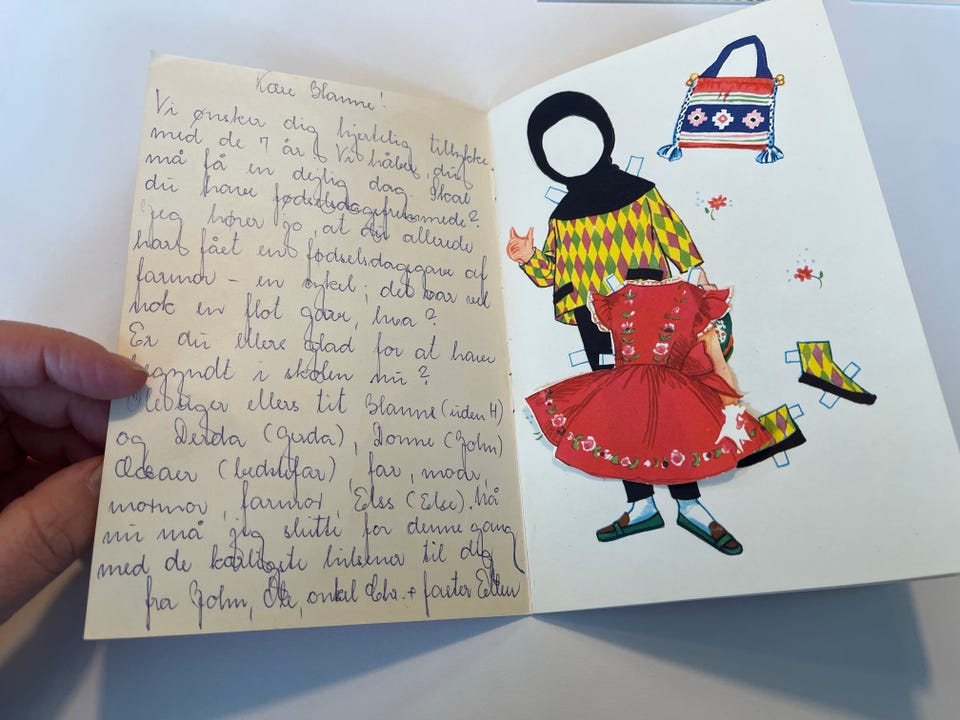 Kære Hanne!
Vi ønsker dig hjertelig tillykke
med de 7 år. Vi håber, du
må få en dejlig dag. Skal
du have fødselsdagsfremmede?
Jeg hører jo, at du allerede
har fået en fødselsdagsgave af
farmor – en cykel; det var vel
nok en flot gave, hva?
Er du ellers glad for at have
begyndt i skolen nu?
siger ellers tit Hanne (uden H)
og Derda (Gerda), Donne (John)
(bedstefar), far, mor,
mormor, farmor, Elss (Else). Nå
nu må jeg slutte for denne gang
med de kærligste hilsener til dig
fra John, onkel Chr. + faster Ellen